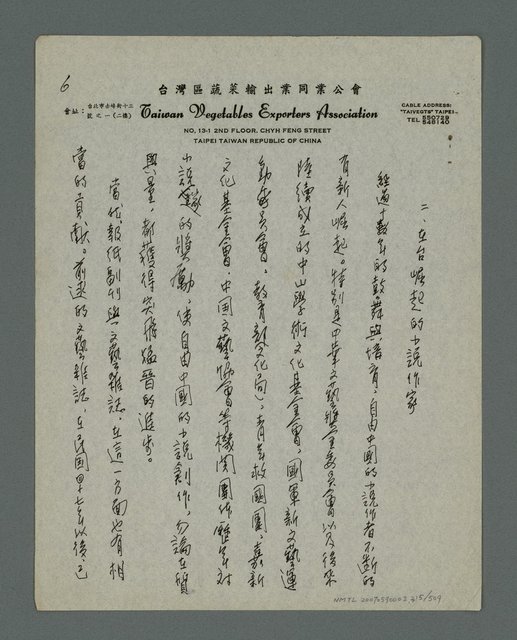 6
台灣區蔬菜輸出業同業公會
會址：台北市赤峰街十三號之一(二樓)
Taiwan Vegetables Exporters Association
NO. 13-1 2ND FLOOR, CHYH FENG STREET
TAIPEI TAIWAN REPUBLIC OF CHINA
CABLE ADDRESS:
"TAIVEGTS" TAIPEI
TEL
二、在台崛起的小說作家
經過十數年的鼓舞與培育，自由中國的小說作者不斷的
有新人崛起。特別是中華文藝獎金委員會以及後來
陸續成立的中山學術文化基金會，國軍新文藝運
動委員會，教育部文化局，青年救國團，嘉新
文化基金會，中國文藝協會等機關團体歷年對
小說的獎勵，使自由中國的小說創作，勿論在質
與量，都獲得突飛猛晉的進步。
當代報紙副刊與文藝雜誌，在這一方面也有相
當的貢獻。前述的文藝雜誌，在民國四十七年以後，已
NMTL 20070590002 215/509